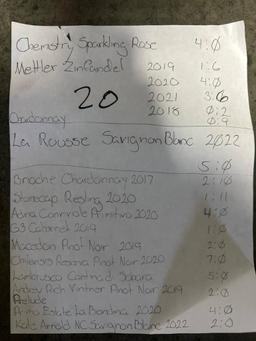 Chemistry Sparkling Rose 4:Ø
Mettler Zinfandel 2019 1:6
2020 4:Ø
20 2021 3:6
2018 0:2
Chardonnay 0:9
La Rousse Savignon Blanc 2022
5:Ø
Brioche Chardonnay 2017 2:10
Stonecap Resling 2020 1:11
2020 4:Ø
G3 Cabernet 2019 1:Ø
Macedon Pinot Noir 2019 2:Ø
Reserva Pinot Noir 2020 7:Ø
Lambrusco 5:Ø
Andrew Rich Vintner Pinot Noir 2019 2:Ø
Prelude
Estate La Bonatina 2020 4:Ø
Kate Arnold NC Savignon Blanc 2022 2:0